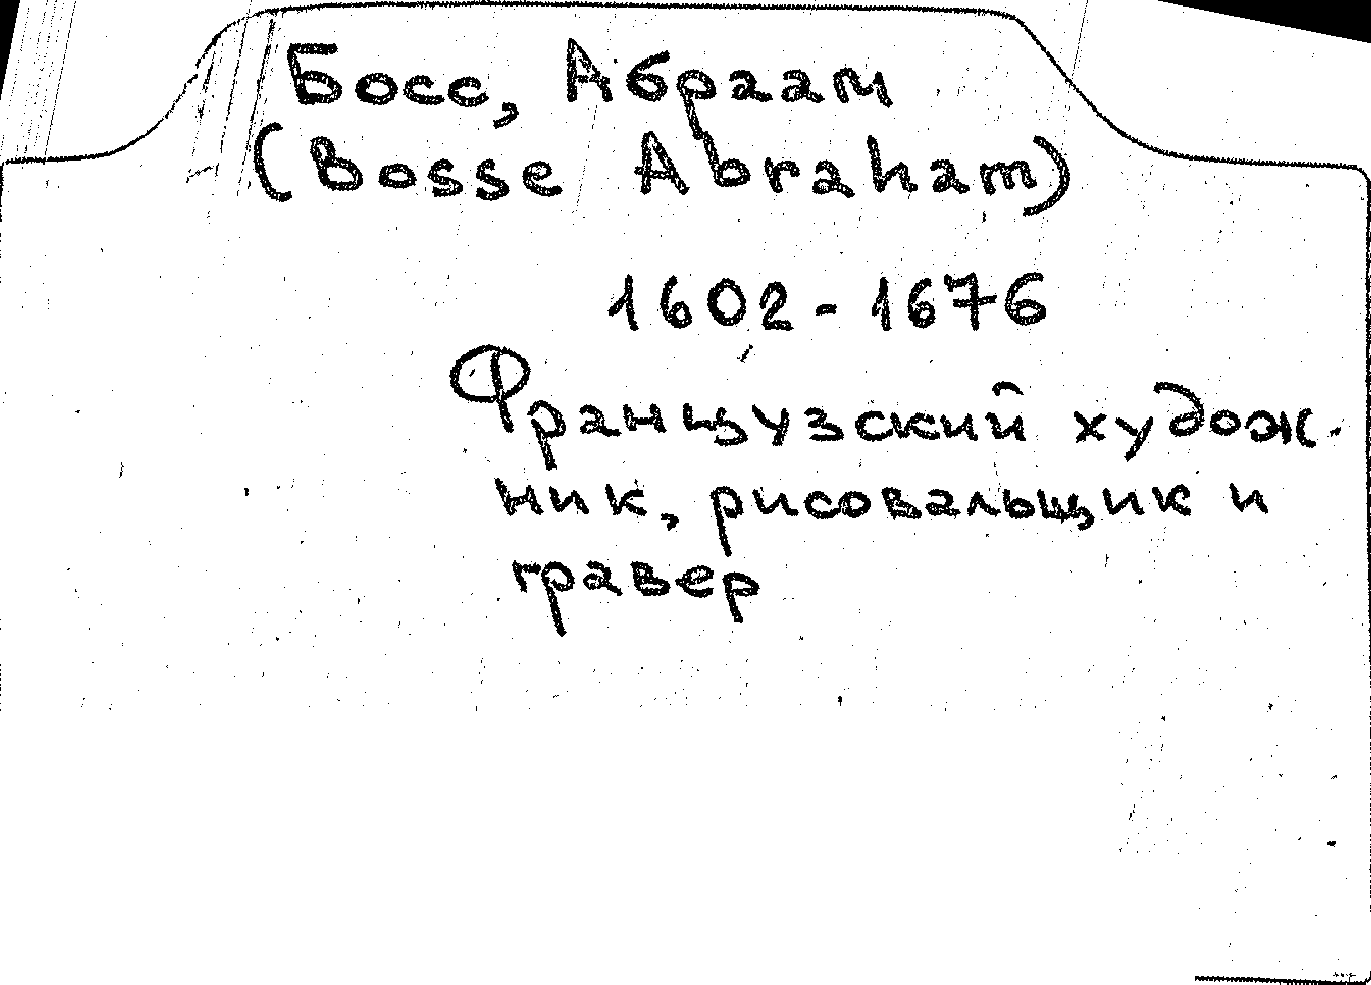 Босс, Абраам
(Bosse Abraham)
1602-1676
Французский худож-
ник, рисовальщик и
гравер